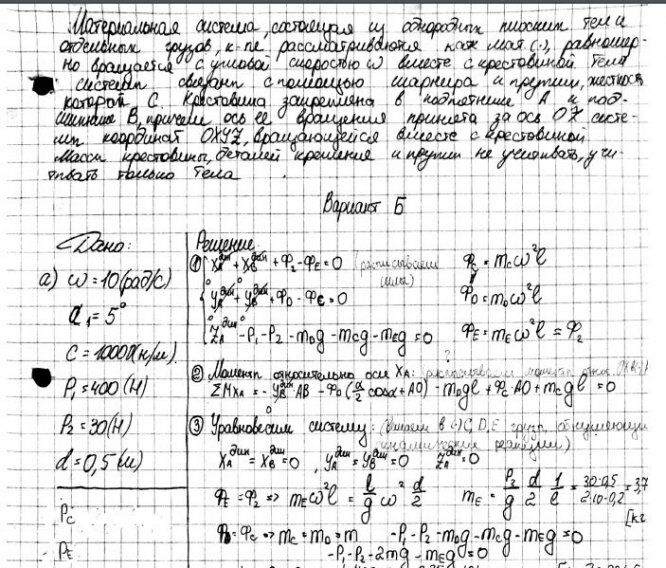 Материальная система, состоящая из однородных плоских тел и
отдельных грузов, к-ые рассматриваются как мат. (·), равномер-
но вращается с угловой скоростью ω вместе с крестовиной. Тела
системы связаны с помощью шарнира и пружин, жесткость
которой C. Крестовина закреплена в подпятнике A и под-
шипнике B, причем ось её вращения принята за ось OZ систе-
мы координат OXYZ, вращающейся вместе с крестовиной.
Массы крестовины, деталей крепления и пружин не учитывать, учи-
тывать только тела
Вариант Б
Дано:
а) ω = 10 (рад/с)
α₁ = 5°
C = 1000 (н/м)
P₁ = 400 (Н)
P₂ = 30 (Н)
d = 0,5 (м)
P_C
P_E
Решение
① X_A^дин + X_B^дин + Ф₂ - Ф_E = 0 (расписываем силы) Ф_C = m_C ω² l
Y_A^дин + Y_B^дин + Ф_D - Ф_C = 0 Ф_D = m_D ω² l
Z_A^дин - P₁ - P₂ - m_D g - m_C g - m_E g = 0 Ф_E = m_E ω² l = Ф₂
② Моменты относительно оси X_A:
ΣM_XA = - Y_B^дин AB - Ф_D (d/2 cosα + AO) - m_D gl + Ф_C · AO + m_C gl = 0
③ Уравновесим систему: в (·) C, D, E груза, динамические реакции)
X_A^дин = X_B^дин = 0, Y_A^дин = Y_B^дин = 0 Z_A^дин = 0
Ф_E = Ф₂ => m_E ω² l = l/g ω² d/2 m_E = P₂/g d/2 1/l = 30·0,5/2·10·0,2 = 3,7 [кг
Ф_D = Ф_C => m_C = m_D = m -P₁ - P₂ - m_D g - m_C g - m_E g = 0
-P₁ - P₂ - 2mg - m_E g = 0